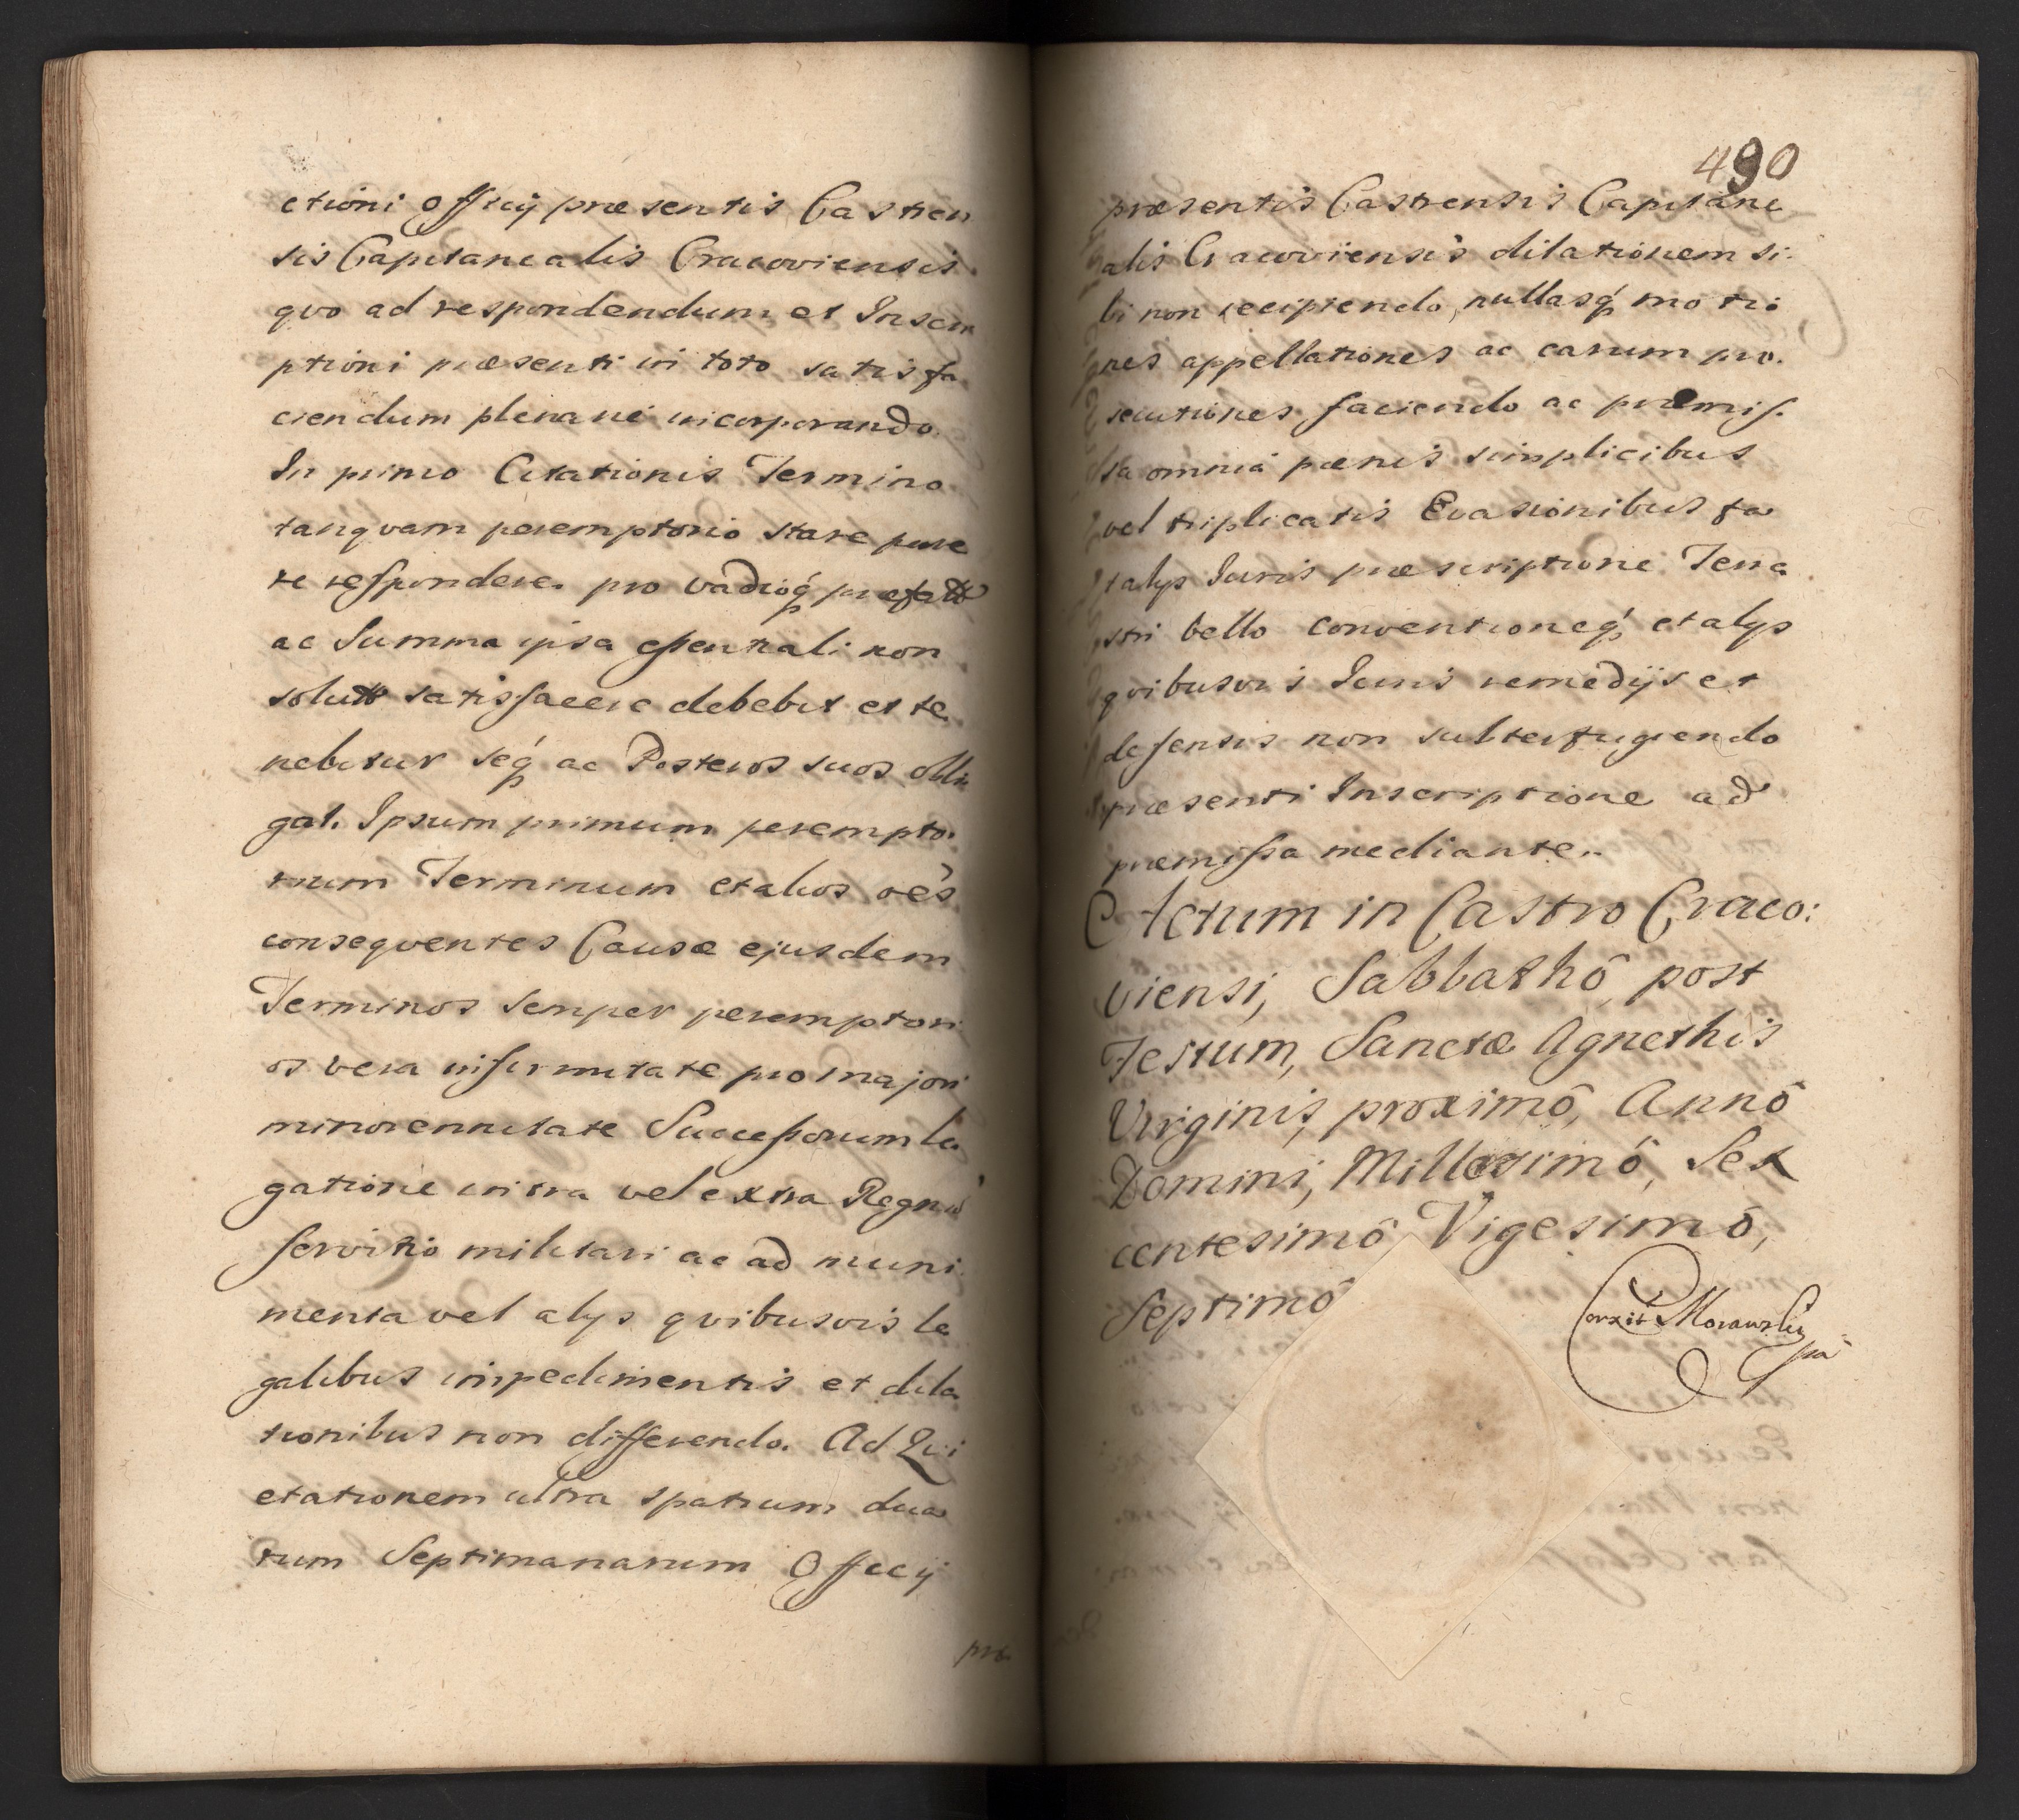 ctioni Officij præsentis Castren
sis Capitanealis Cracoviensis
qvo ad respondendum et Inscri
ptioni præsenti in toto satisfa
ciendum plenariè incorporando.
In primo Citationis Termino
tanqvam peremptorio stare pare
re respondere. pro vadioq́ præfatto
ac Summa ipsa essentiali non
solutt satisfacere debebit et te
nebitur seq́ ac Posteros suos obli
gat. Ipsum primum perempto.
rium Terminum et alios oe͂s
conseqventes Causæ ejusdem
Terminos semper peremptori
os vera infirmitate pro majori
minorennitate Successorum le
gatione intra vel extra Regnũ
servitio militari ac ad muni
menta vel alys qvibusvis le
galibus impedimentis et dila
tionibus non differendo. Ad Qui
etationem ultra spatium dua
rum Septimanarum Officij
præ
490
præsentis Castrensis Capitane
alis Cracoviensis dilationem si.
bi non recipiendo, nullasq́ motio
nes appellationes ac earum pro.
secutiones faciendo ac præmis.
sa omnia pænis simplicibus
vel triplicatis Evasionibus fa
talys Juris præscriptione Terra
stri bello conventioneq́ et alys
qvibusvis Juris remedijs et
defensis non subterfugiendo
præsenti Inscriptione ad
præmissa mediante..
Actum in Castro Craco:
viensi, Sabbathô post
Festum, Sanctæ Agnethis
Virginis, proximô, Annô
Domini, Millesimô, Sex
centesimô Vigesimô,
Septimô
Corxit Morawsky